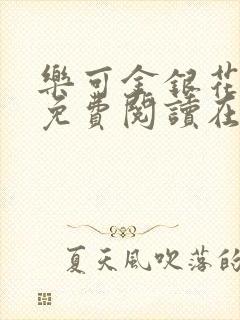 樂可金銀花
免費閱讀在
夏天風吹落的